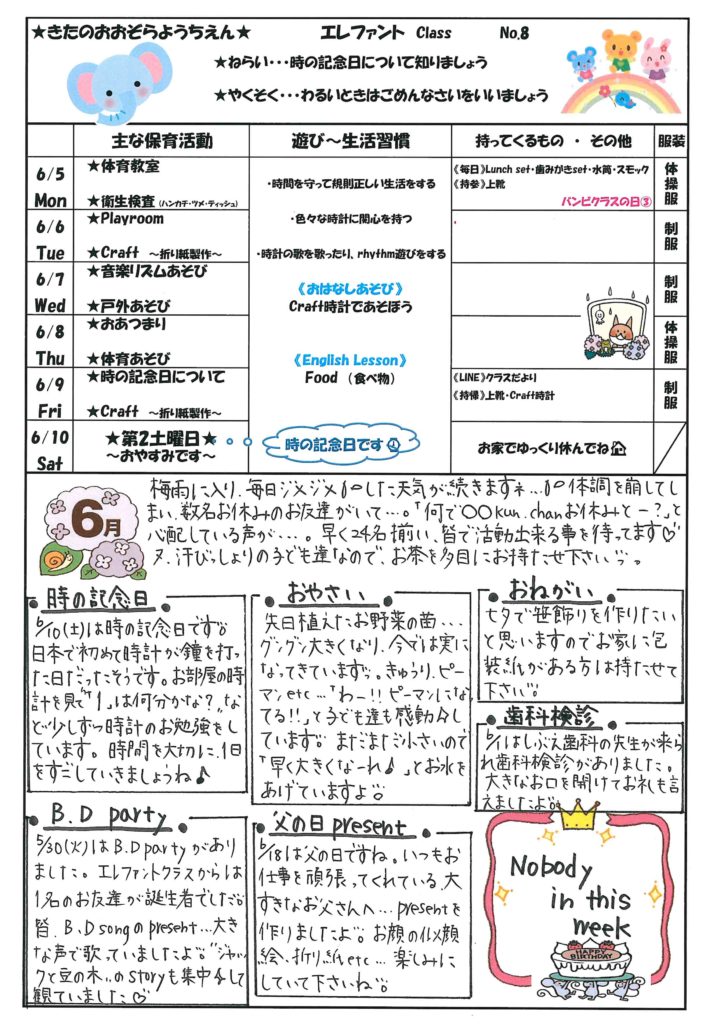 ★きたのおおぞらようちえん★ エレファント Class No.8
★ねらい・・・時の記念日について知りましょう
★やくそく・・・わるいときはごめんなさいをいいましょう
主な保育活動 遊び～生活習慣 持ってくるもの ・ その他 服装
6/5 Mon
★体育教室
★衛生検査（ハンカチ・ツメ・ティッシュ）
《毎日》Lunch set・歯みがきset・水筒・スモック
《持参》上靴
バンビクラスの日③
体操服
6/6 Tue
★Playroom
★Craft ～折り紙製作～
制服
6/7 Wed
★音楽リズムあそび
★戸外あそび
制服
6/8 Thu
★おあつまり
★体育あそび
体操服
6/9 Fri
★時の記念日について
★Craft ～折り紙製作～
《LINE》クラスだより
《持帰》上靴・Craft時計
制服
6/10 Sat
★第2土曜日★
～おやすみです～
時の記念日です
お家でゆっくり休んでね
・時間を守って規則正しい生活をする
・色々な時計に関心を持つ
・時計の歌を歌ったり、rhythm遊びをする
《おはなしあそび》
Craft時計であそぼう
《English Lesson》
Food （食べ物）
6月
梅雨に入り、毎日ジメジメした天気が続きますネ…体調を崩してし
まい、数名お休みのお友達がいて…。「何で〇〇kun.chanお休みとー？」と
心配している声が…。早く24名揃い、皆で活動出来る事を待ってます♡
又、汗びっしょりの子ども達なので、お茶を多目にお持たせ下さい。
時の記念日
6/10(土)は時の記念日です。
日本で初めて時計が鐘を打っ
た日だったそうです。お部屋の時
計を見て"1"は何分かな？な
ど少しずつ時計のお勉強をし
ています。時間を大切に、1日
をすごしていきましょうね♪
おやさい
先日植えたお野菜の苗…
グングン大きくなり、今では実に
なってきています。きゅうり、ピー
マンetc…「わー!!ピーマンになっ
てる!!」と子ども達も感動
しています。まだまだ小さいので
「早く大きくなーれ♪」とお水を
あげていますよ。
おねがい
七夕で笹飾りを作りたい
と思いますのでお家に包
装紙がある方は持たせて
下さい。
歯科検診
6/1はしぶえ歯科の先生が来ら
れ歯科検診がありました。
大きなお口を開けてお礼も言
えましたよ。
B.D party
5/30(火)はB.D partyがあり
ました。エレファントクラスからは
1名のお友達が誕生者でした。
皆、B.D songのpresent…大き
な声で歌っていましたよ。"ジャッ
クと豆の木"のstoryも集中して
観ていました♡
父の日present
6/18は父の日ですね。いつもお
仕事を頑張ってくれている、大
すきなお父さんへ…presentを
作りましたよ。お顔の似顔
絵、折り紙etc…楽しみに
していて下さいね。
Nobody
in this
week
HAPPY
BIRTHDAY